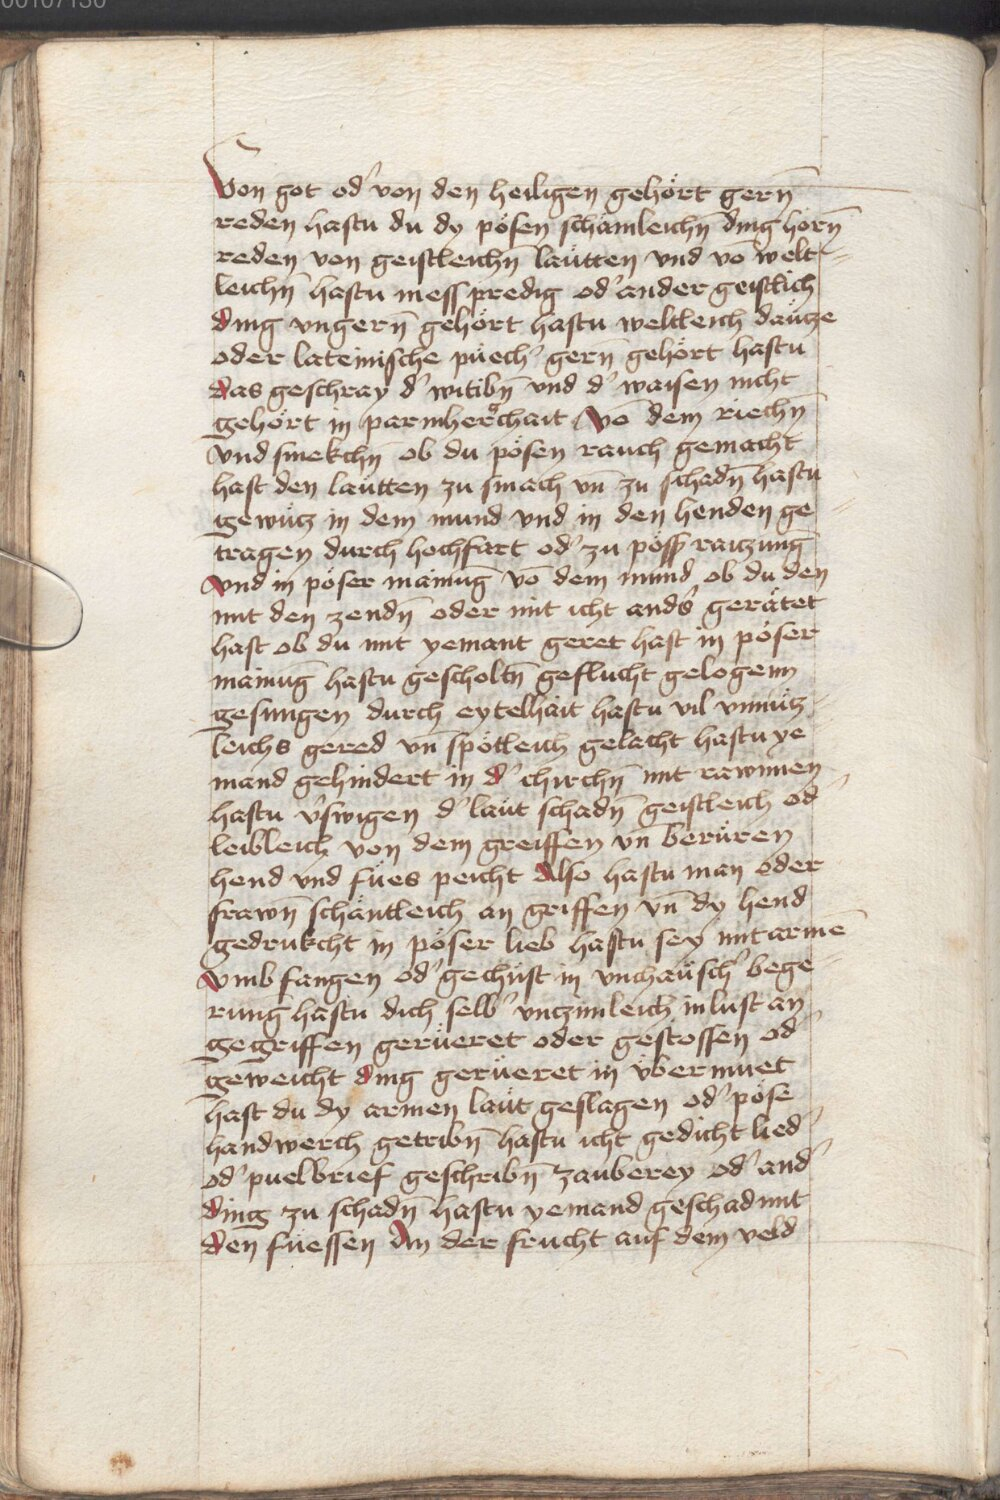 00107130
Von got od' von den heiligen gehört gern̄
reden hastu du dy pösen schämleichn̄ ding hörn̄
reden von geistleichn̄ läutten vnd vō welt-
leichn̄ hastu mess predig od' ander geistlich
ding vngern̄ gehört hastu weltleich däutze
oder lateinische püech' gern̄ gehört hastu
das geschray d' witibn̄ vnd d' waisen nicht
gehört in parmherczhait Vō dem riechn̄
vnd smekchn̄ ob du pösen rauch gemacht
hast den läutten zu smach vn̄ zu schadn̄ hastu
gewürtz in dem mund vnd in den henden ge
tragen durch hochfart od' zu pöss' raitzung
vnd in pöser mainūg Vō dem mund ob du den
mit den zendn̄ oder mit icht and's gerätet
hast ob du mit yemant geret hast in pöser
mainūg hastu gescholtn̄ geflucht gelogenn
gesungen durch eytelhait hastu vil vnnütz
leichs gered vn̄ spötleich gelacht hastu ye
mand gehindert in d' chirchn̄ mit rawnnen
hastu v'swigen d' läut schadn̄ geistleich od'
leibleich von dem greiffen vn̄ berüren
hend vnd fües peicht Also hastu man oder
frawn̄ schäntleich an griffen vn̄ dy hend
gedrukcht in pöser lieb hastu sey mit armē
vmbfangen od' gechüst in vnchäusch' bege-
rung hastu dich selb' vnczimleich in lust an
gegriffen gerüeret oder gestossen od'
geweicht ding gerüeret in vbermuet
hast du dy armen läut geslagen od' pöse
handwerch getribn̄ hastu icht gedicht lied'
od' puelbrief geschribn̄ zauberey od' and'
ding zu schadn̄ hastu yemand geschad mit
den füessen An der frucht auf dem veld